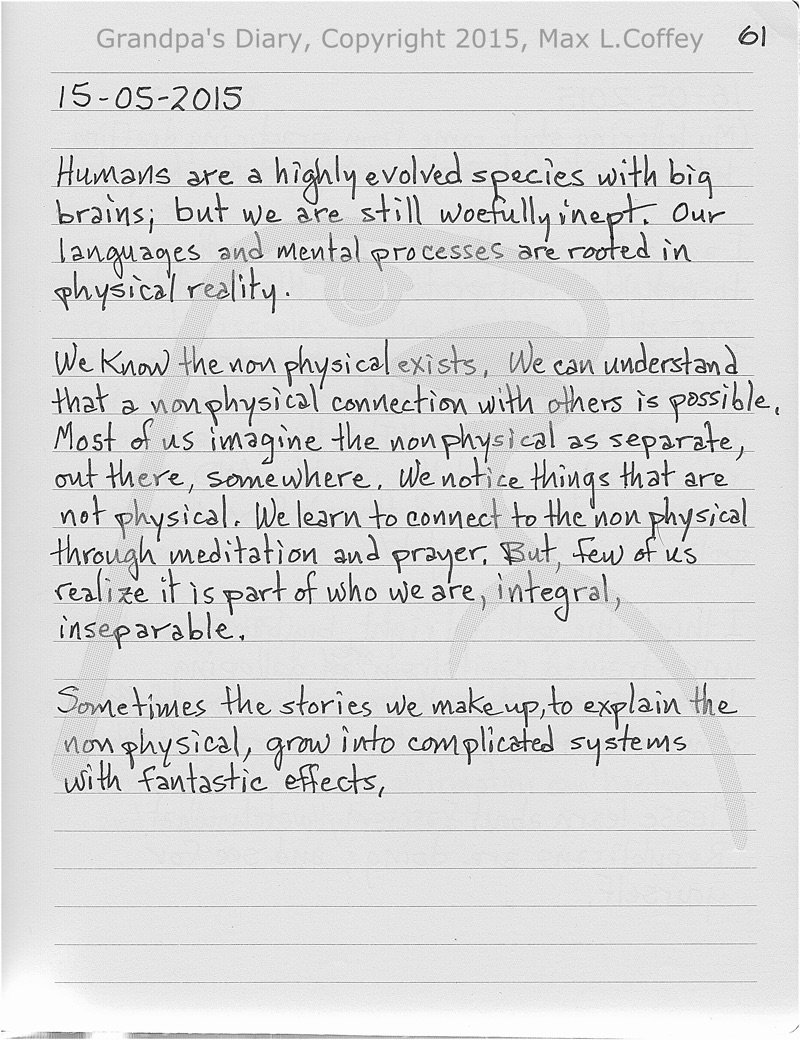 Grandpa's Diary, Copyright 2015, Max L.Coffey
61
15-05-2015
Humans are a highly evolved species with big
brains; but we are still woefully inept. Our
languages and mental processes are rooted in
physical reality.
We Know the nonphysical exists. We can understand
that a nonphysical connection with others is possible.
Most of us imagine the nonphysical as separate,
out there, somewhere. We notice things that are
not physical. We learn to connect to the nonphysical
through meditation and prayer. But, few of us
realize it is part of who we are, integral,
inseparable.
Sometimes the stories we make up, to explain the
nonphysical, grow into complicated systems
with fantastic effects,